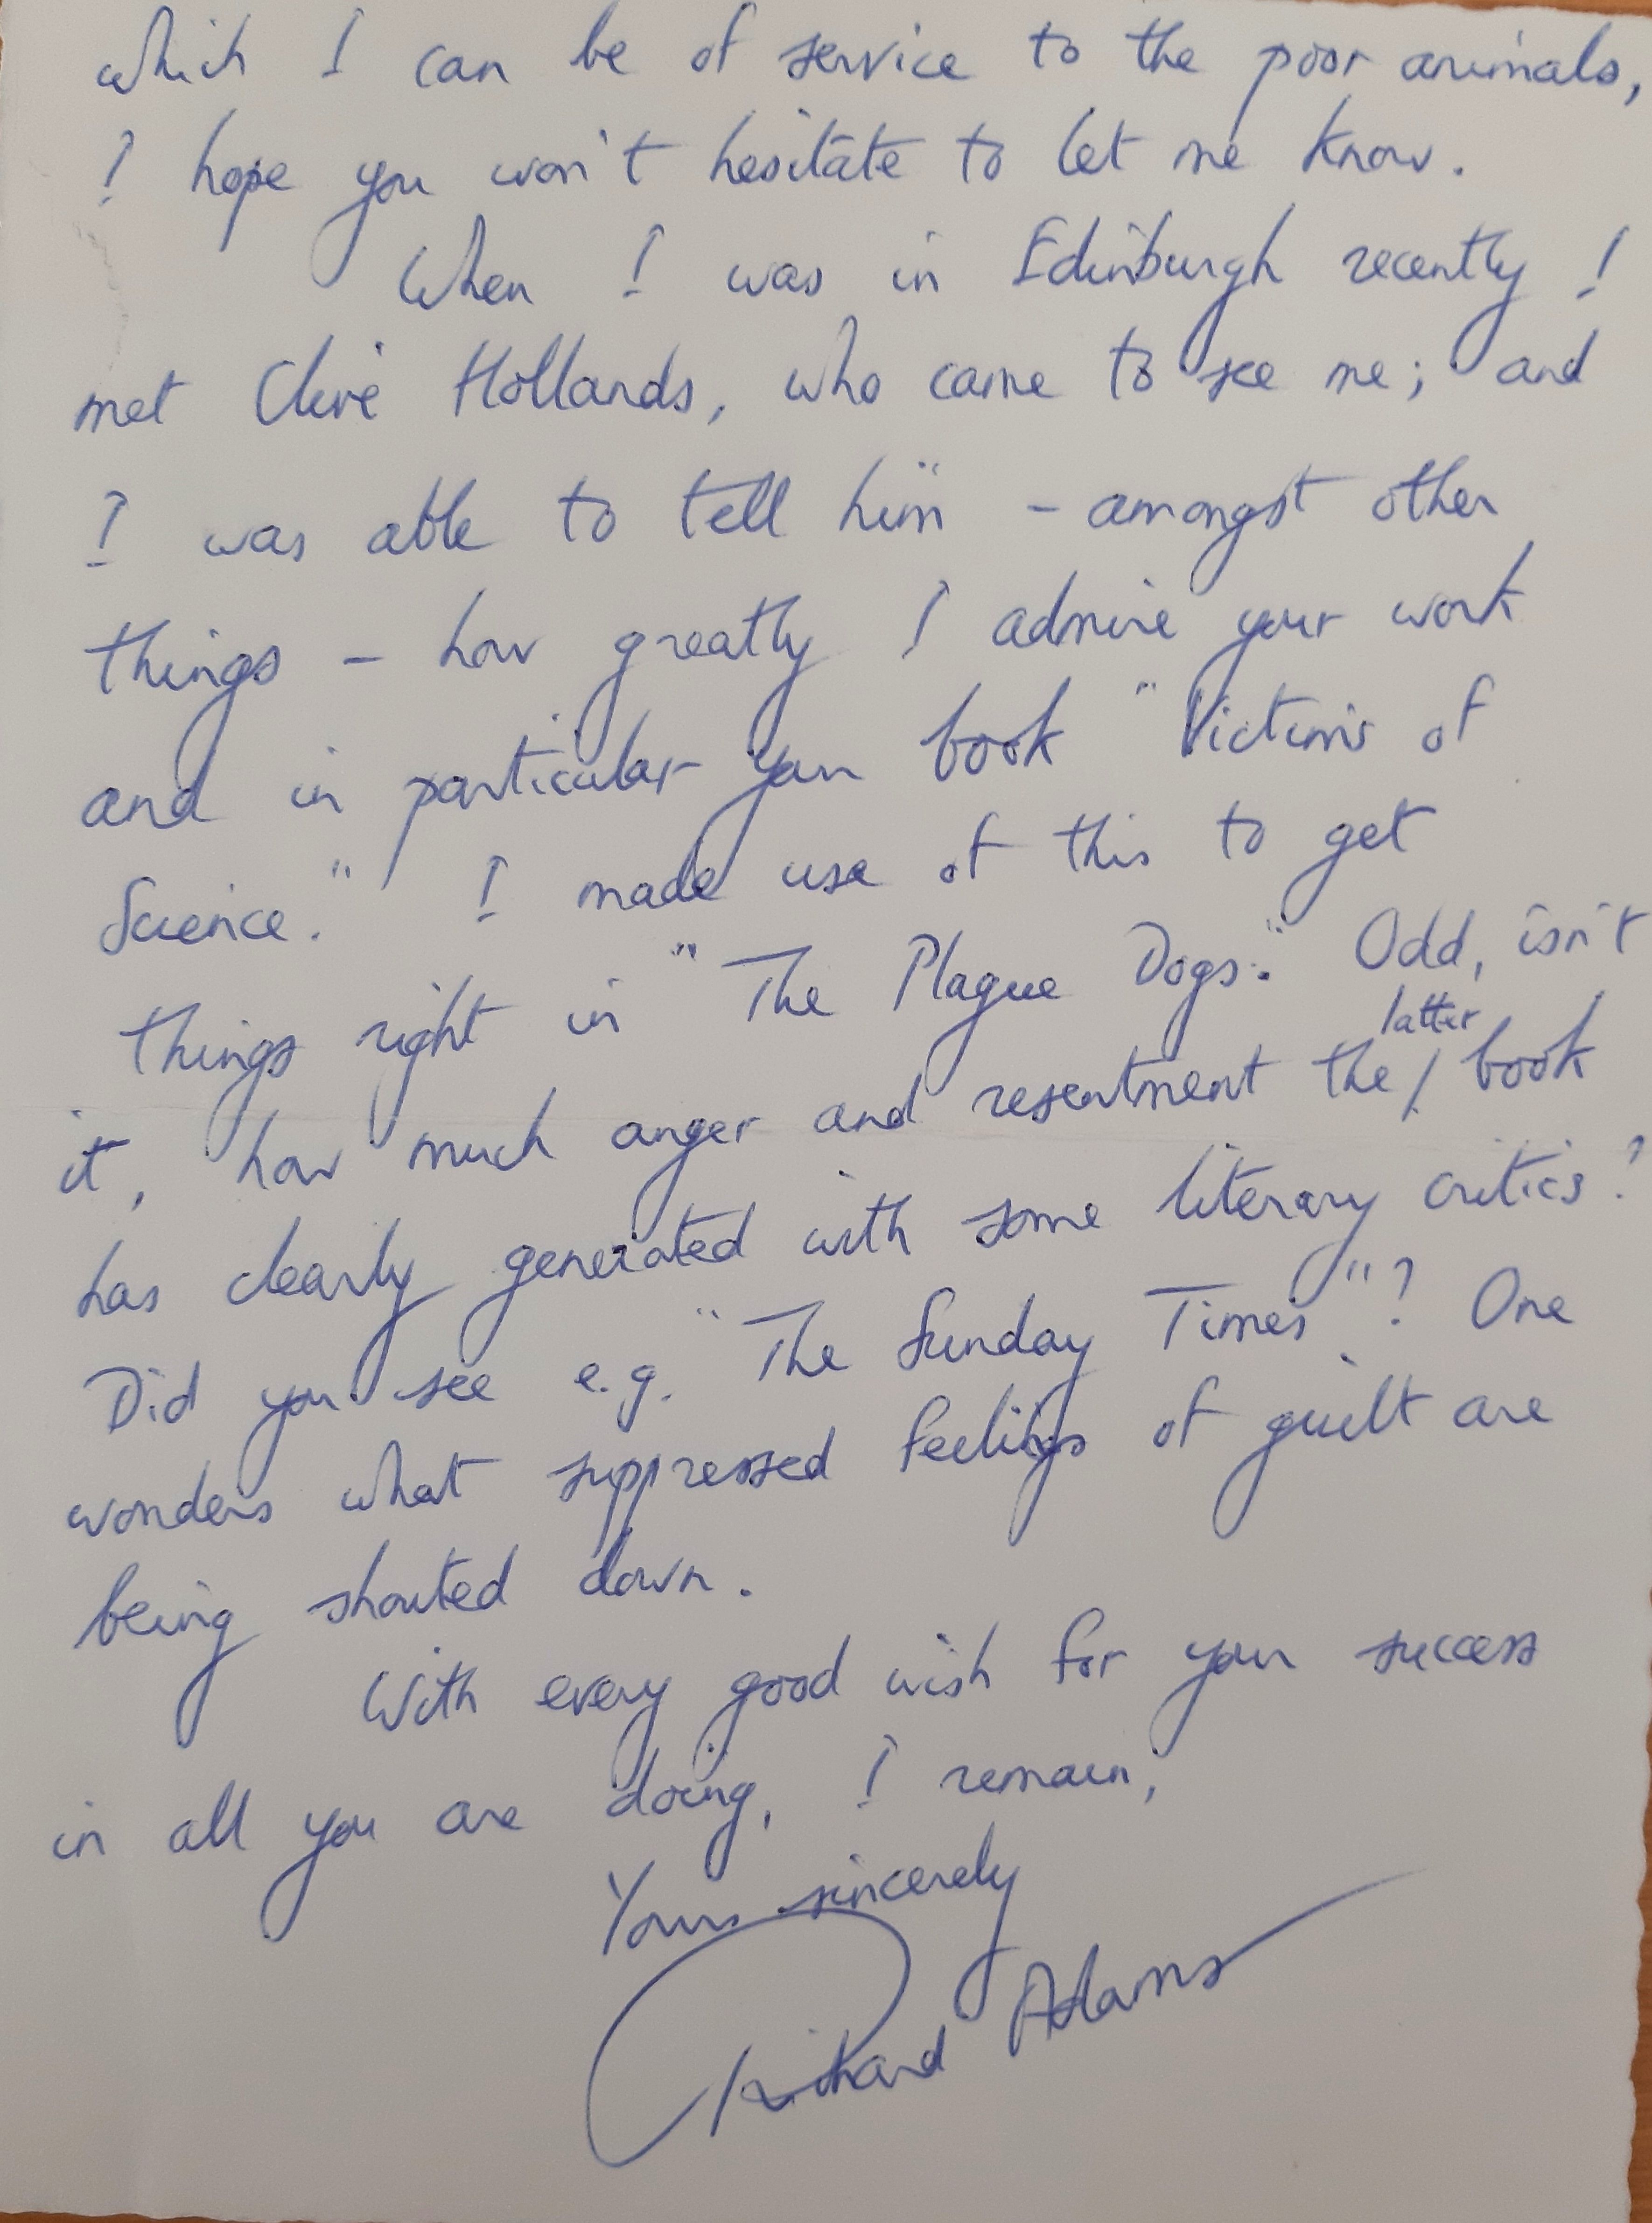 which I can be of service to the poor animals,
I hope you won't hesitate to let me know.
When I was in Edinburgh recently I
met Clive Hollands, who came to see me; and
I was able to tell him – amongst other
things – how greatly I admire your work
and in particular your book "Victims of
Science." I made use of this to get
things right in "The Plague Dogs." Odd, isn't
latter
it, how much anger and resentment the / book
has clearly generated with some literary critics?
Did you see e.g. "The Sunday Times"? One
wonders what suppressed feelings of guilt are
being shouted down.
With every good wish for your success
in all you are doing, I remain,
Yours sincerely
Richard Adams